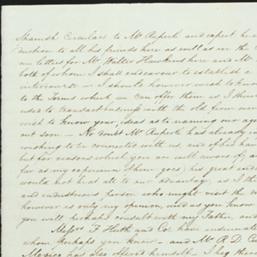 Spanish Circulars to Mr Ruperti and expect he
mention to all his friends here as well as on the
our letters for Mr Walter Hawkins here and Mr
both of whom I shall endeavour to establish a
intercourse — I should however wish to know
to the terms which we can offer them as I think
used to transact business with the old firm
wish to know your ideas as to naming our age
out soon — No doubt Mr Ruperti has already
wishing to be connected with us, and of his
but for reasons which you are well aware of,
far as my experience there goes, his great
would not be to our advantage, as it
and industrious person who might
however is only my opinion, and as you know
you will perhaps consult with my Father, and
Messrs F Huth and Co. have
whom perhaps you know — and Mr A D
Mexico has also offered himself. I beg